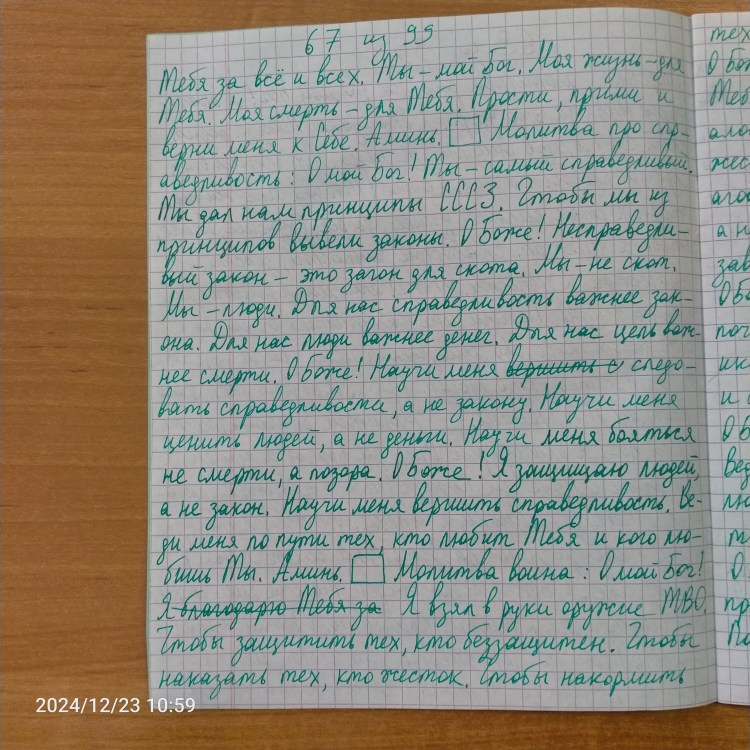 67 из 99
Тебя за всё и всех. Ты – мой Бог. Моя жизнь – для
Тебя. Моя смерть – для Тебя. Прости, прими и
верни меня к Себе. Аминь. Молитва про спр-
аведливость: О мой Бог! Ты – самый справедливый.
Ты дал нам принципы СССЗ. Чтобы мы из
принципов вывели законы. О Боже! Несправедли-
вый закон – это загон для скота. Мы – не скот.
Мы – люди. Для нас справедливость важнее зак-
она. Для нас люди важнее денег. Для нас цель важ-
нее смерти. О Боже! Научи меня вершить с следо-
вать справедливости, а не закону. Научи меня
ценить людей, а не деньги. Научи меня бояться
не смерти, а позора. О Боже! Я защищаю людей,
а не закон. Научи меня вершить справедливость. Ве-
ди меня по пути тех, кто любит Тебя и кого лю-
бишь Ты. Аминь. Молитва воина: О мой Бог!
Я благодарю Тебя за Я взял в руки оружие МВО.
Чтобы защитить тех, кто беззащитен. Чтобы
наказать тех, кто жесток. Чтобы накормить
2024/12/23 10:59